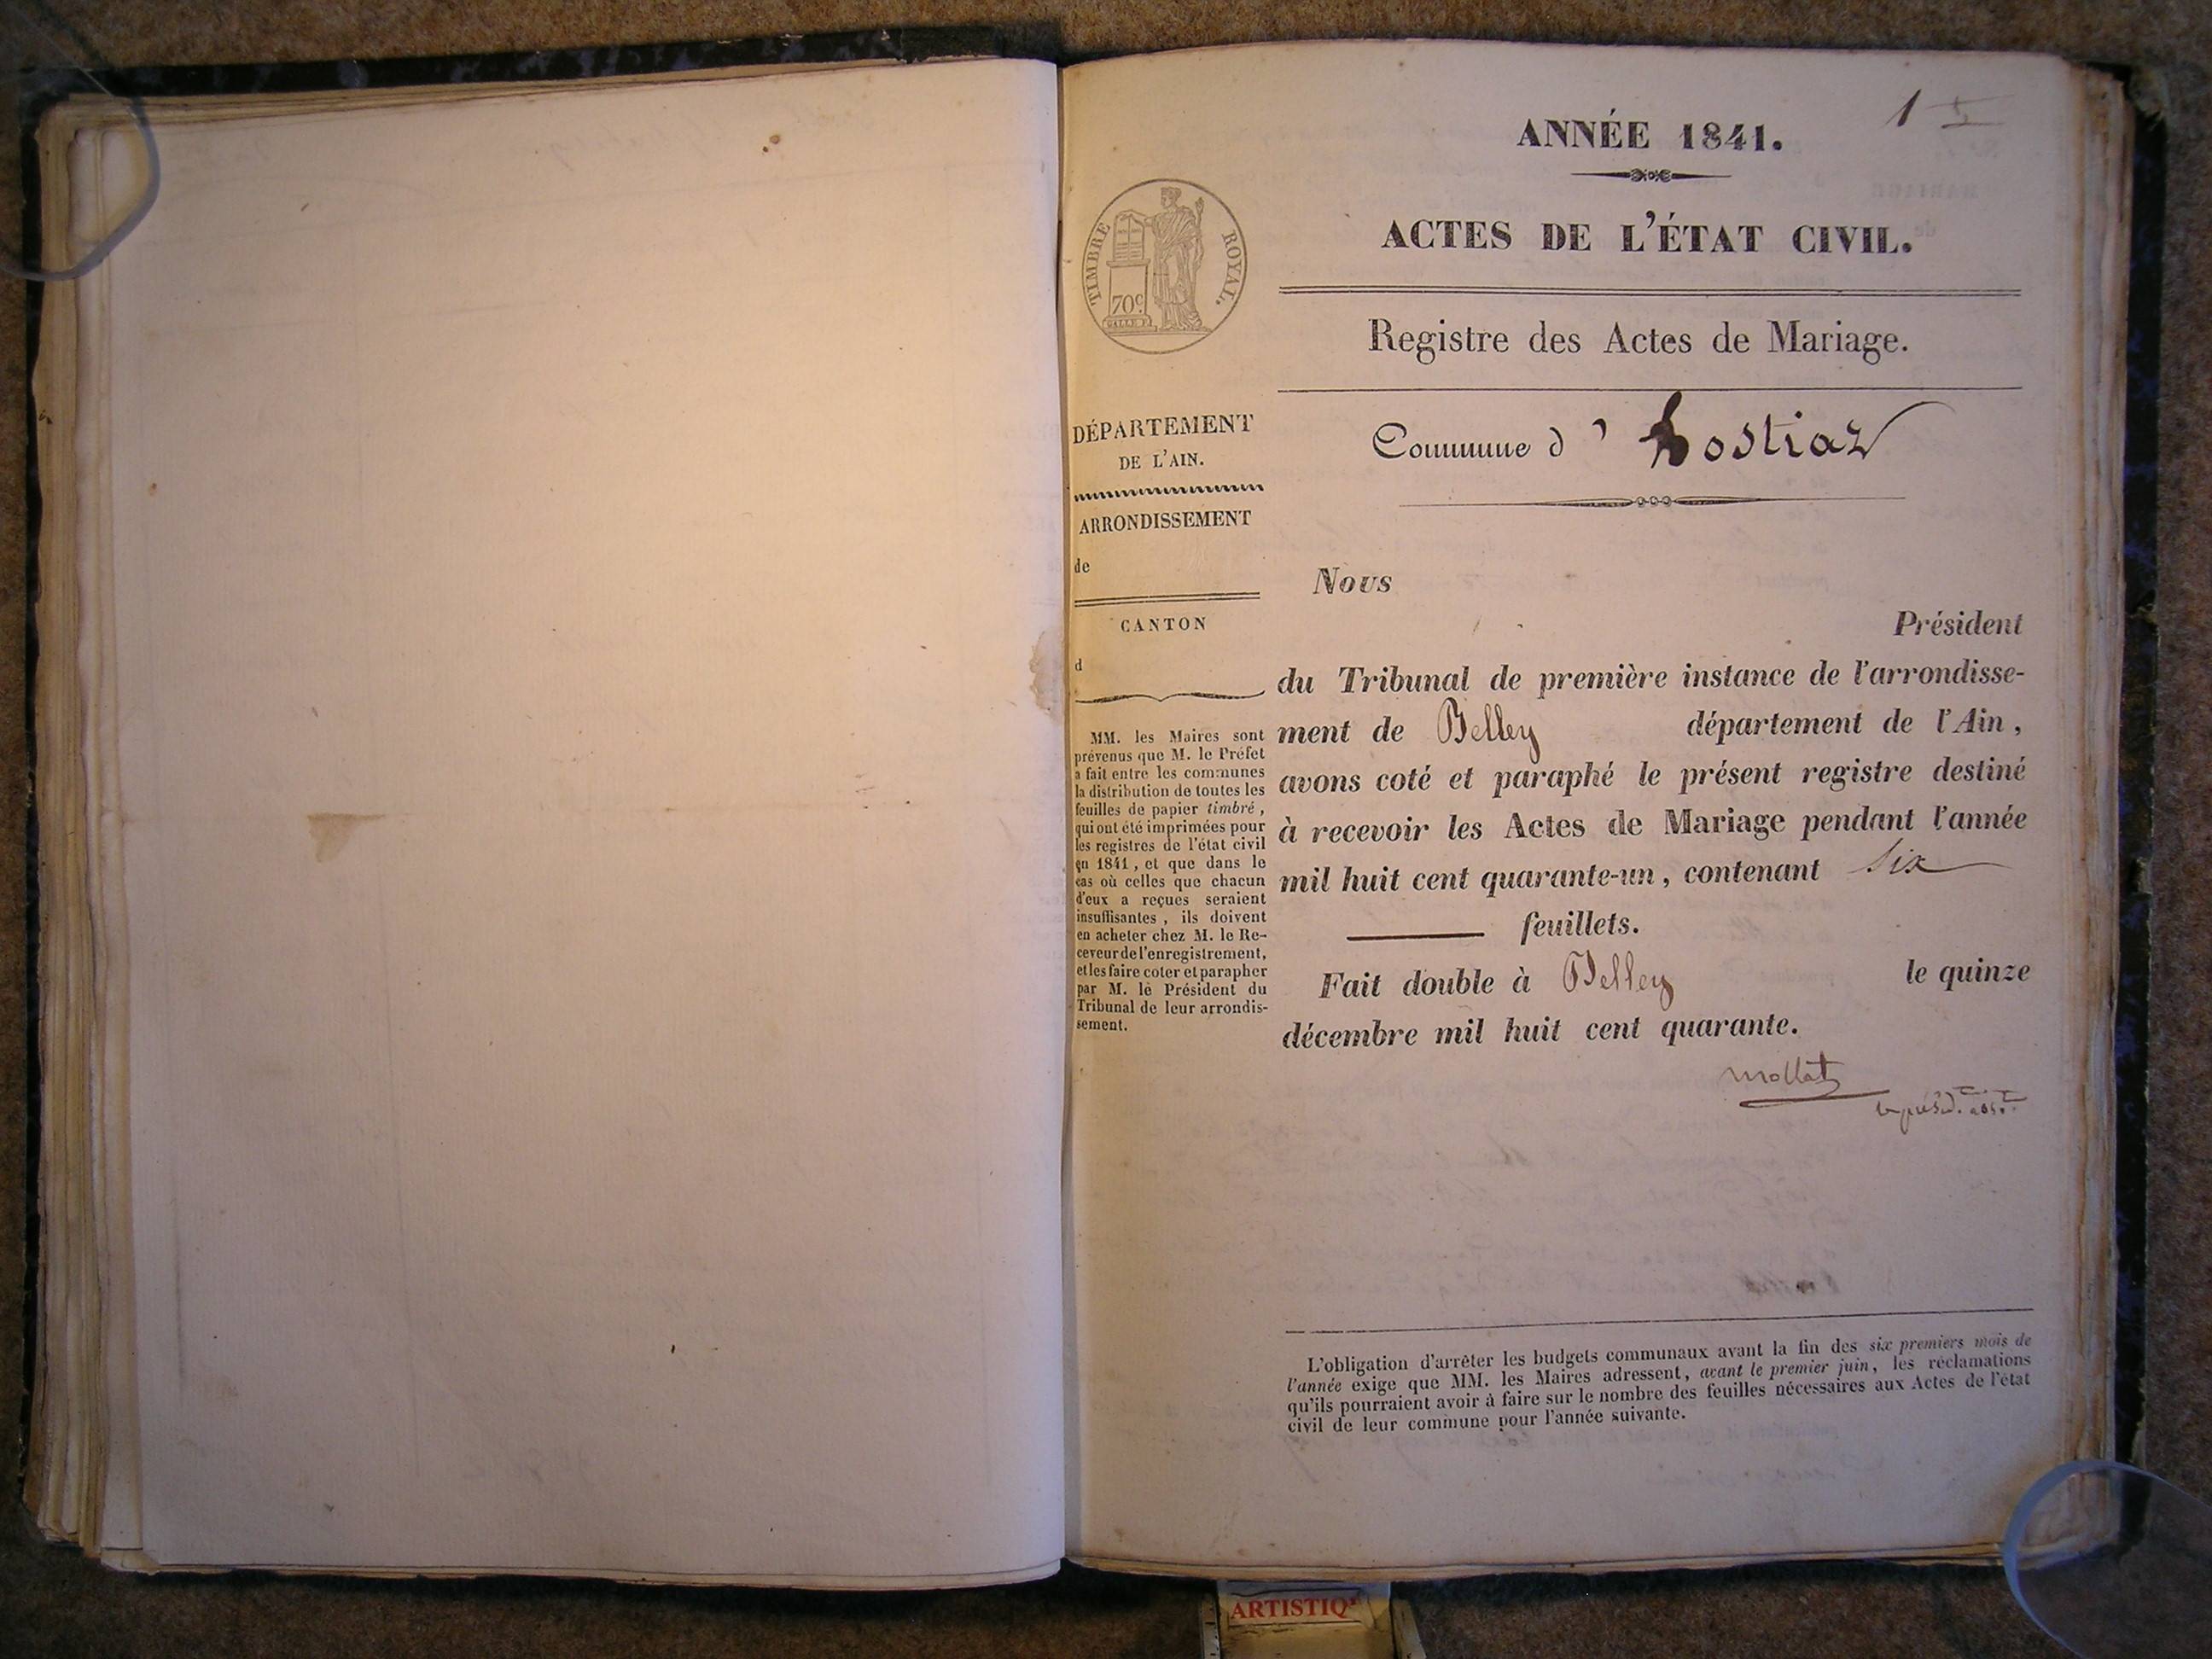 1
ANNÉE 1841.
ACTES DE L'ÉTAT CIVIL.
TIMBRE ROYAL.
70c
GALLE F.
Registre des Actes de Mariage.
Commune d' hostiaz
DÉPARTEMENT
DE L'AIN.
ARRONDISSEMENT
de
CANTON
d
MM. les Maires sont
prévenus que M. le Préfet
a fait entre les communes
la distribution de toutes les
feuilles de papier timbré,
qui ont été imprimées pour
les registres de l'état civil
en 1841, et que dans le
cas où celles que chacun
d'eux a reçues seraient
insuffisantes, ils doivent
en acheter chez M. le Re-
ceveur de l'enregistrement,
et les faire coter et parapher
par M. le Président du
Tribunal de leur arrondis-
sement.
Nous
Président
du Tribunal de première instance de l'arrondisse-
ment de Belley département de l'Ain,
avons coté et paraphé le présent registre destiné
à recevoir les Actes de Mariage pendant l'année
mil huit cent quarante-un, contenant six
feuillets.
Fait double à Belley le quinze
décembre mil huit cent quarante.
Mollat
L'obligation d'arrêter les budgets communaux avant la fin des six premiers mois de
l'année exige que MM. les Maires adressent, avant le premier juin, les réclamations
qu'ils pourraient avoir à faire sur le nombre des feuilles nécessaires aux Actes de l'état
civil de leur commune pour l'année suivante.
ARTISTIQ